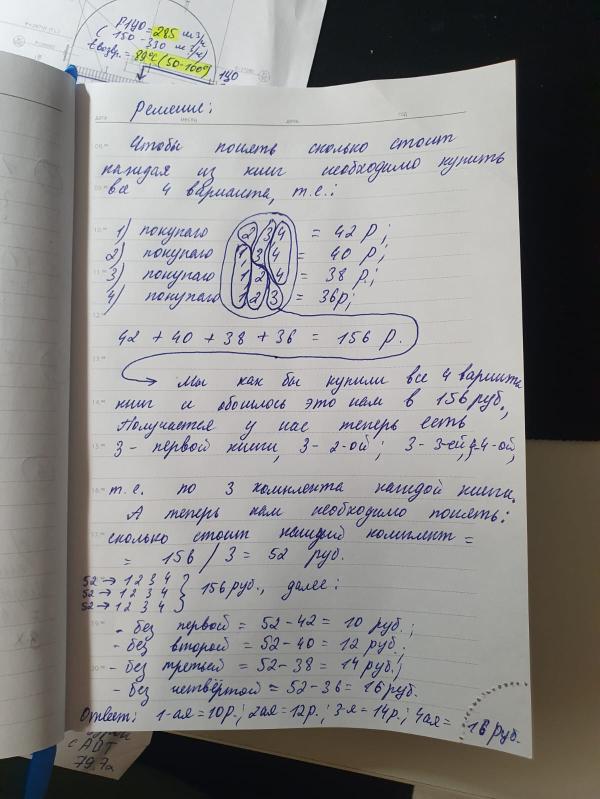 P140 = 285 т3/ч
(150 - 330 т3/ч)
tвозвр. = 89°C (50-100°)
140
дата
месяц
день
год
Решение:
Чтобы понять сколько стоит
каждая из книг необходимо купить
все 4 варианта, т.е.:
1) покупаю 2 3 4 = 42 р;
2) покупаю 1 3 4 = 40 р;
3) покупаю 1 2 4 = 38 р;
4) покупаю 1 2 3 = 36р;
42 + 40 + 38 + 36 = 156 р.
Мы как бы купили все 4 варианта
книг и обошлось это нам в 156 руб.,
Получается у нас теперь есть
3 - первой книги, 3 - 2-ой; 3 - 3-ей, 3-4-ой,
т.е. по 3 комплекта каждой книги.
А теперь нам необходимо понять:
сколько стоит каждый комплект =
= 156 / 3 = 52 руб.
52 → 1 2 3 4
52 → 1 2 3 4 } 156 руб., далее:
52 → 1 2 3 4
- без первой = 52 - 42 = 10 руб.;
- без второй = 52 - 40 = 12 руб.;
- без третьей = 52 - 38 = 14 руб.;
- без четвёртой = 52 - 36 = 16 руб.
Ответ: 1-ая = 10р.; 2ая = 12р.; 3-я = 14р.; 4ая = 16 руб.
с АВТ
79.7а